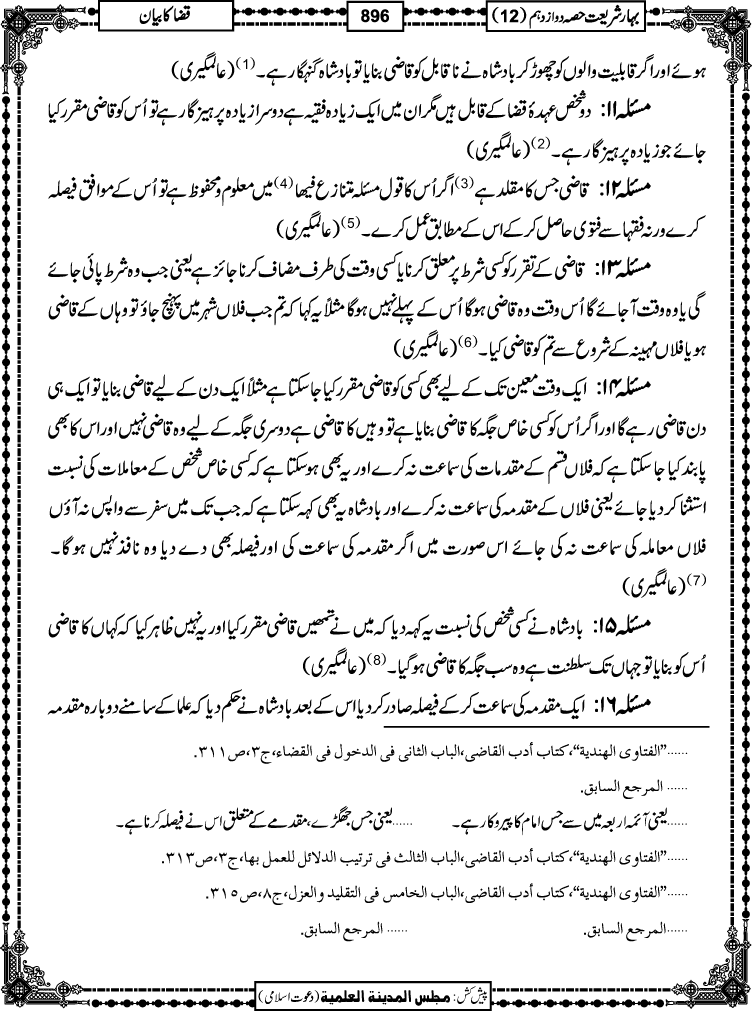 بہارِ شریعت حصہ دوازدہم (12)
896
قضا کا بیان
ہوئے اور اگر قابلیت والوں کو چھوڑ کر بادشاہ نے نا قابل کو قاضی بنایا تو بادشاہ گنہگار ہے۔(1) (عالمگیری)
مسئلہ ۱۱: دو شخص عہدۂ قضا کے قابل ہیں مگر ان میں ایک زیادہ فقیہ ہے دوسرا زیادہ پرہیز گار ہے تو اُس کو قاضی مقرر کیا
جائے جو زیادہ پرہیز گار ہے۔(2) (عالمگیری)
مسئلہ ۱۲: قاضی جس کا مقلد ہے(3) اگر اُس کا قول مسئلہ متنازع فیھا(4) میں معلوم و محفوظ ہے تو اُس کے موافق فیصلہ
کرے ورنہ فقہا سے فتویٰ حاصل کرکے اس کے مطابق عمل کرے۔(5) (عالمگیری)
مسئلہ ۱۳: قاضی کے تقرر کو کسی شرط پر معلق کرنا یا کسی وقت کی طرف مضاف کرنا جائز ہے یعنی جب وہ شرط پائی جائے
گی یا وہ وقت آجائے گا اُس وقت وہ قاضی ہوگا اُس کے پہلے نہیں ہوگا مثلاً یہ کہا کہ تم جب فلاں شہر میں پہنچ جاؤ تو وہاں کے قاضی
ہو یا فلاں مہینہ کے شروع سے تم کو قاضی کیا۔(6) (عالمگیری)
مسئلہ ۱۴: ایک وقت معین تک کے لیے بھی کسی کو قاضی مقرر کیا جاسکتا ہے مثلاً ایک دن کے لیے قاضی بنایا تو ایک ہی
دن قاضی رہے گا اور اگر اُس کو کسی خاص جگہ کا قاضی بنایا ہے تو وہیں کا قاضی ہے دوسری جگہ کے لیے وہ قاضی نہیں اور اس کا بھی
پابند کیا جا سکتا ہے کہ فلاں قسم کے مقدمات کی سماعت نہ کرے اور یہ بھی ہوسکتا ہے کہ کسی خاص شخص کے معاملات کی نسبت
استثنا کر دیا جائے یعنی فلاں کے مقدمہ کی سماعت نہ کرے اور بادشاہ یہ بھی کہہ سکتا ہے کہ جب تک میں سفر سے واپس نہ آؤں
فلاں معاملہ کی سماعت نہ کی جائے اس صورت میں اگر مقدمہ کی سماعت کی اور فیصلہ بھی دے دیا وہ نافذ نہیں ہوگا۔
(7) (عالمگیری)
مسئلہ ۱۵: بادشاہ نے کسی شخص کی نسبت یہ کہہ دیا کہ میں نے تمھیں قاضی مقرر کیا اور یہ نہیں ظاہر کیا کہ کہاں کا قاضی
اُس کو بنایا تو جہاں تک سلطنت ہے وہ سب جگہ کا قاضی ہوگیا۔(8) (عالمگیری)
مسئلہ ۱۶: ایک مقدمہ کی سماعت کرکے فیصلہ صادر کردیا اس کے بعد بادشاہ نے حکم دیا کہ علما کے سامنے دوبارہ مقدمہ
......"الفتاوی الھندیة"، کتاب أدب القاضی، الباب الثانی فی الدخول فی القضاء، ج۳، ص۳۱۱.
...... المرجع السابق.
......یعنی آئمہ اربعہ میں سے جس امام کا پیروکار ہے۔ ......یعنی جس جھگڑے، مقدمے کے متعلق اس نے فیصلہ کرنا ہے۔
......"الفتاوی الھندیة"، کتاب أدب القاضی، الباب الثالث فی ترتیب الدلائل للعمل بھا، ج۳، ص۳۱۳.
......"الفتاوی الھندیة"، کتاب أدب القاضی، الباب الخامس فی التقلید والعزل، ج۸، ص۳۱۵.
......المرجع السابق. ...... المرجع السابق.
پیش کش: مجلس المدینة العلمیة (دعوتِ اسلامی)